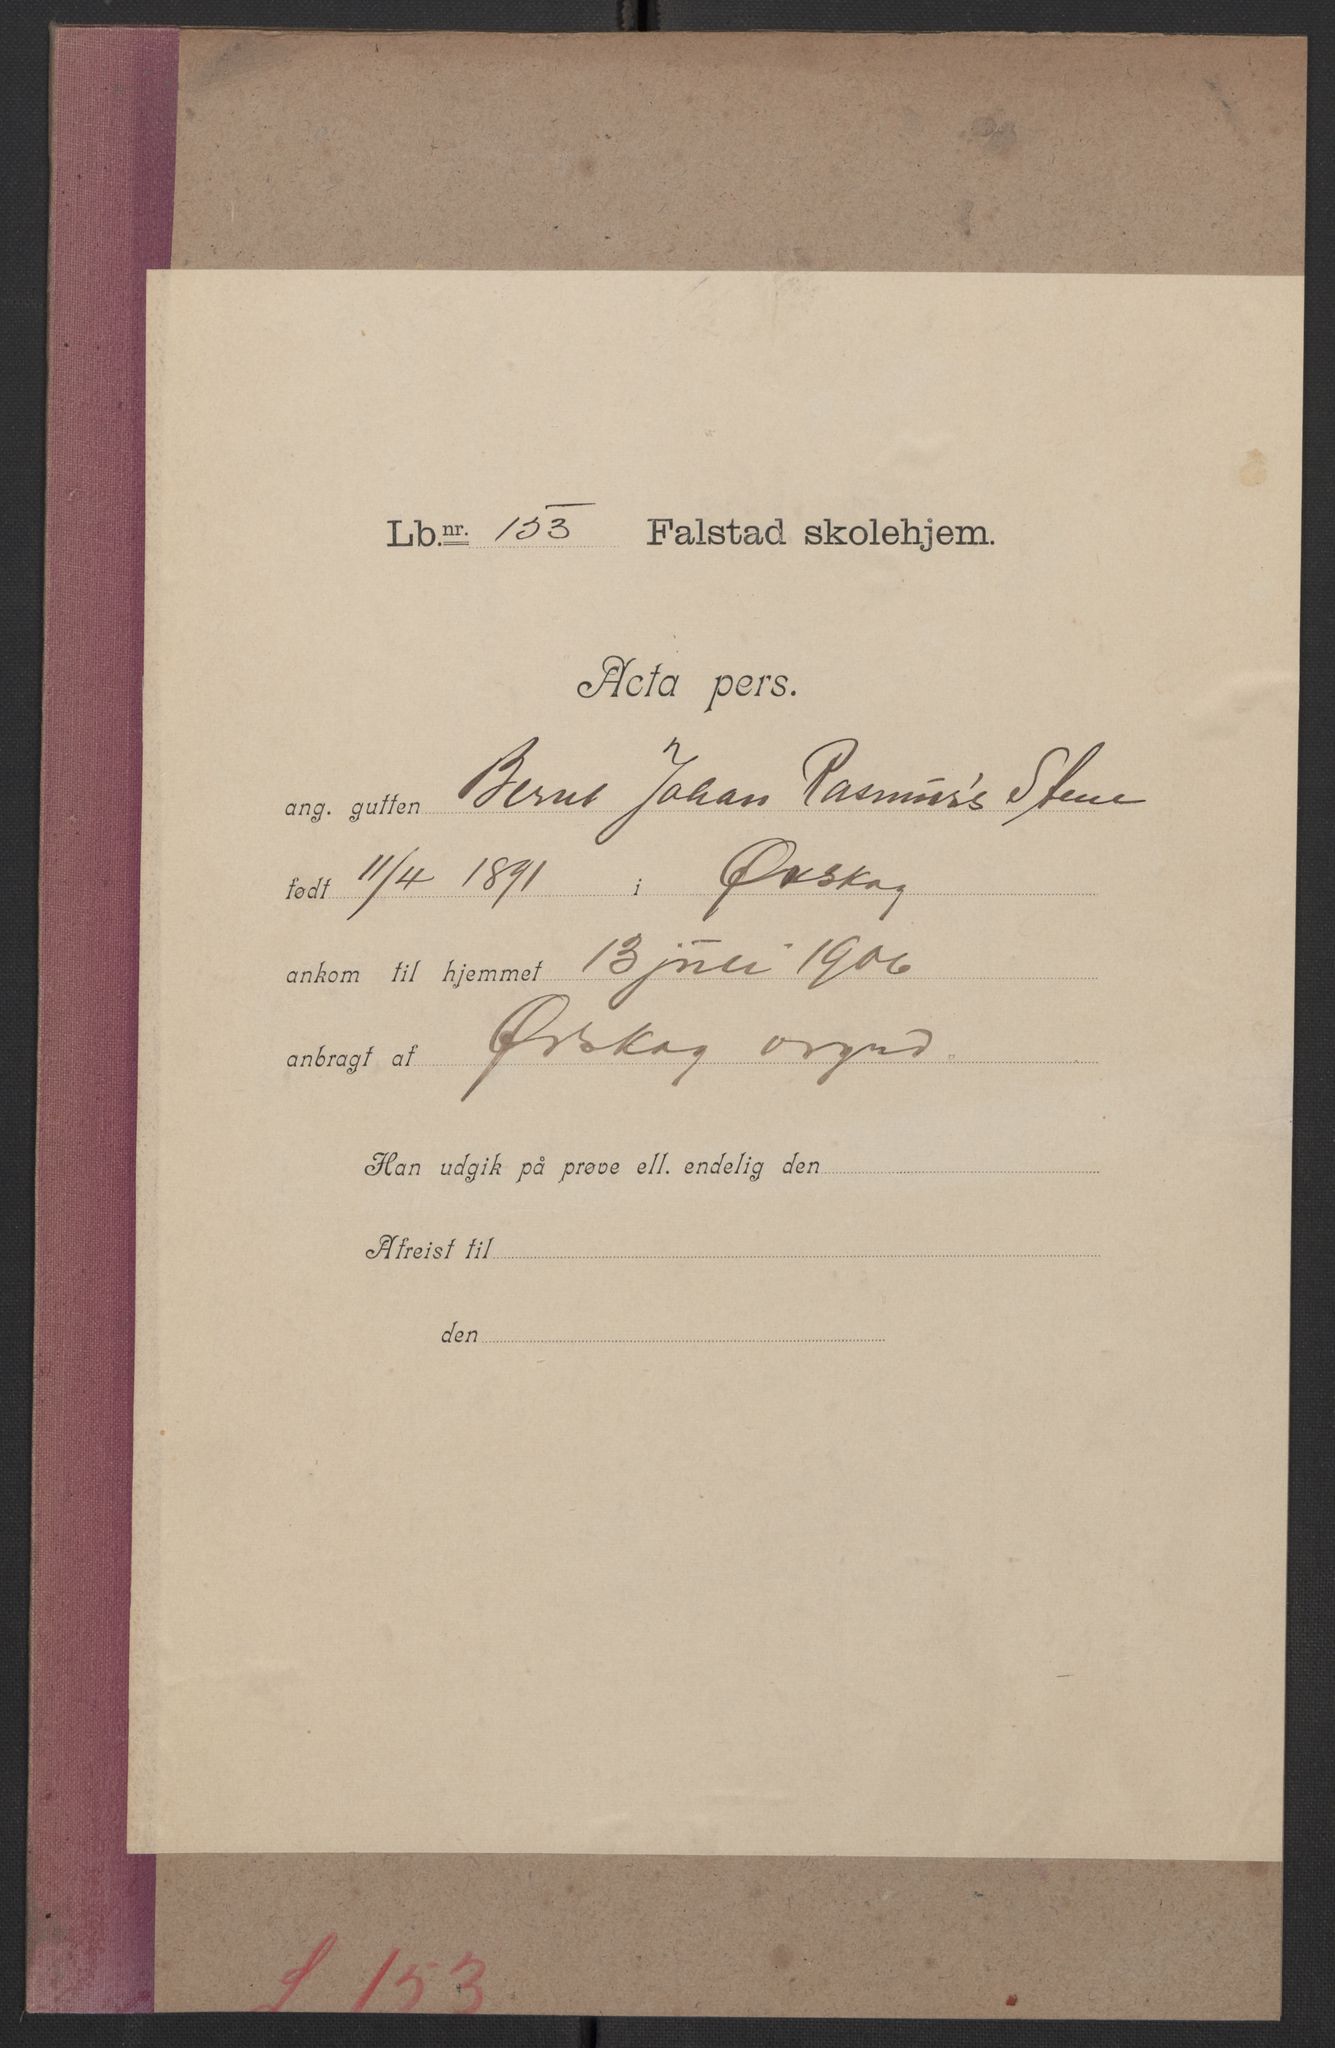 Lb.nr. 153 Falstad skolehjem.
Acta pers.
ang. gutten Bernt Johan Rasmus's Stene
født 11/4 1891 i Ørskog
ankom til hjemmet 13 juli 1906
anbragt af Ørskog vrgrd.
Han udgik på prøve ell. endelig den
Afreist til
den
L 153